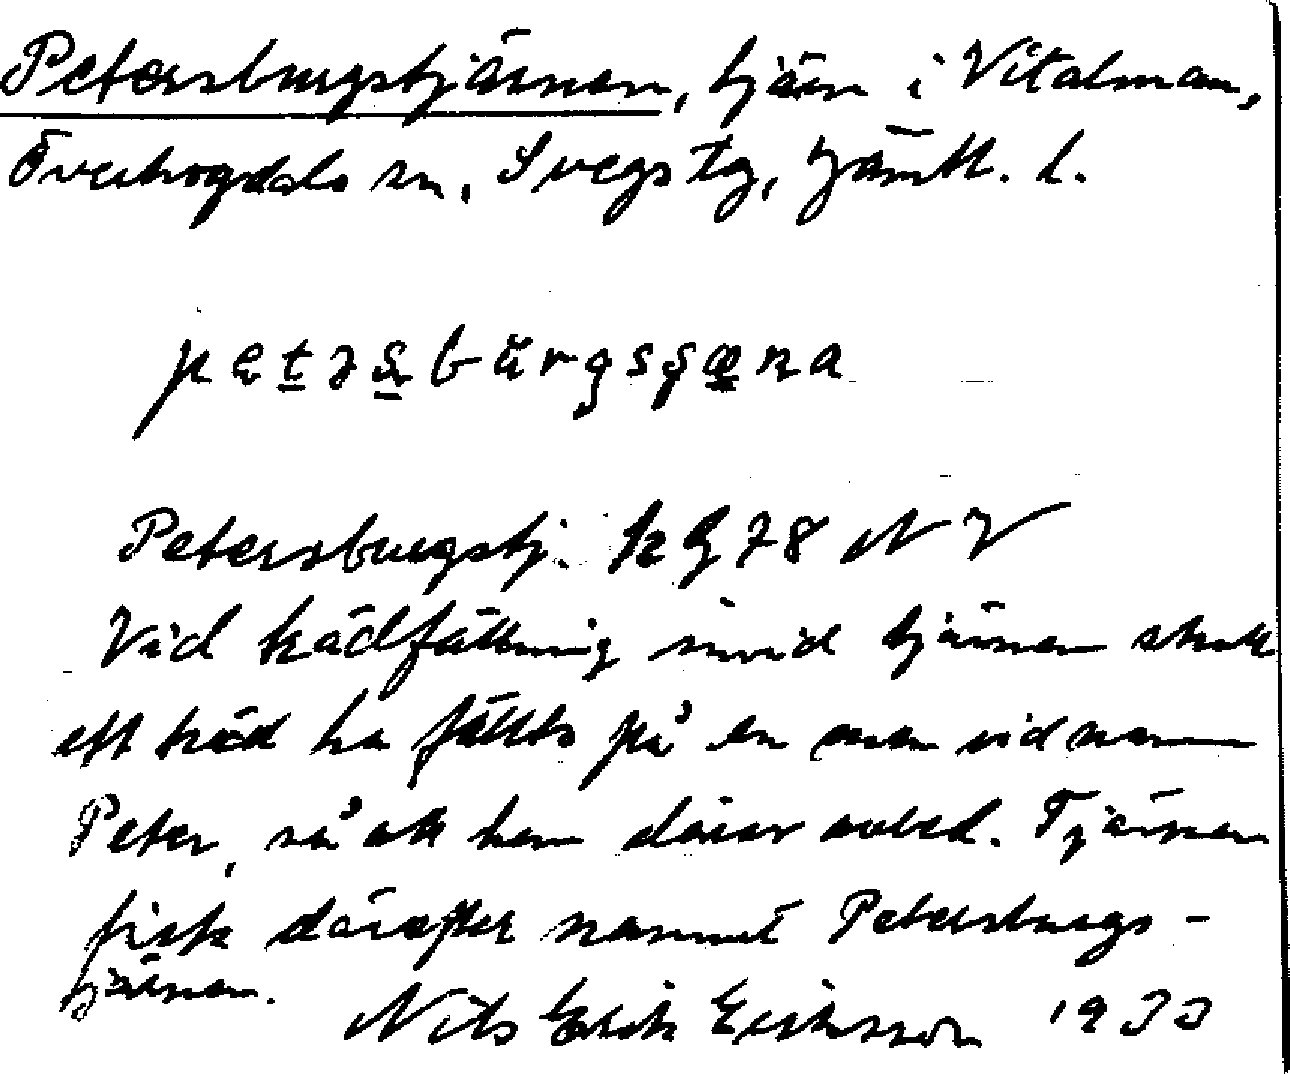 Petersburgstjärnen, tjärn i Vitalman,
Överhogdals sn, Svegs tg, Jämtl. l.
Petersburgstj. 78 NV
Vid trädfällning invid tjärnen skall
ett träd ha fällts på en man vid namn
Peter, så att han därav avled. Tjärnen
fick därefter namnet Petersburgs-
tjärnen.
Nils Erik Eriksson 1933